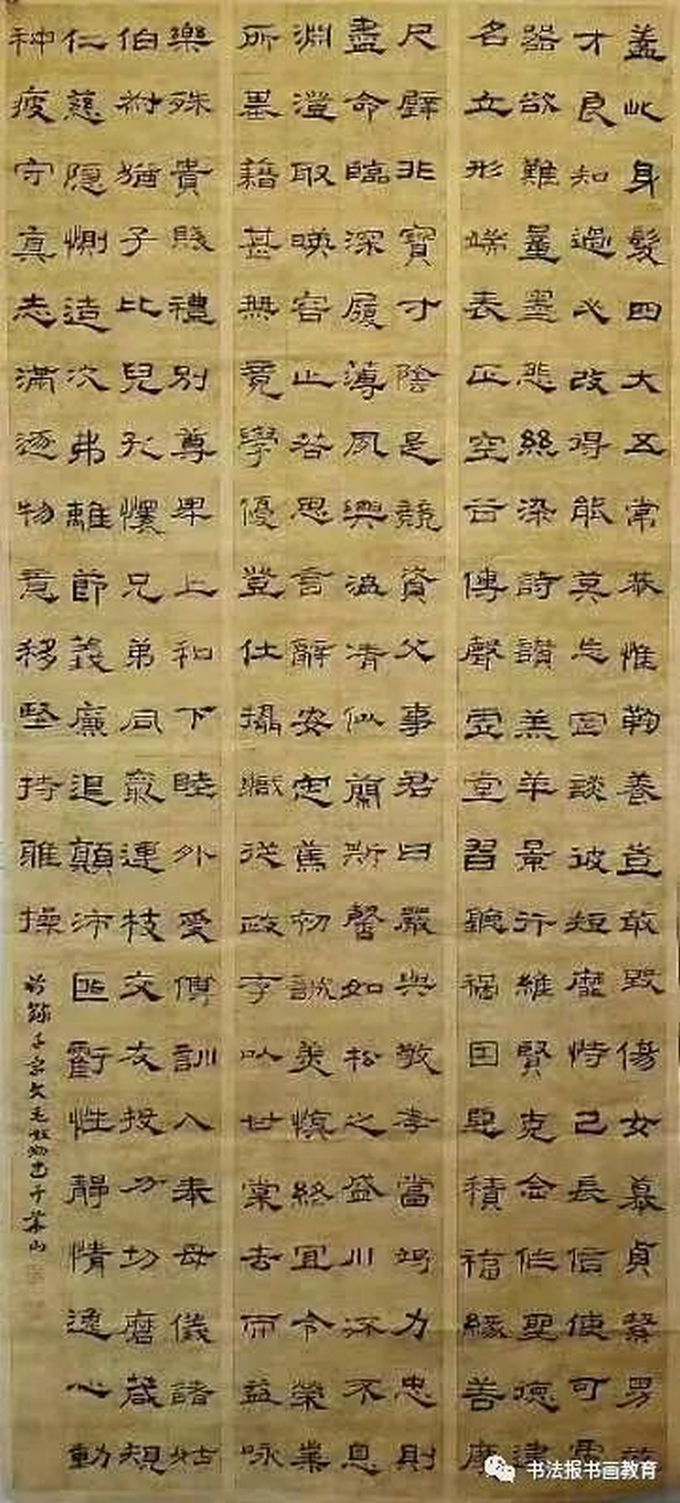 蓋此身髮四大五常恭惟鞠養豈敢毀傷女慕貞絜男效
才良知過必改得能莫忘罔談彼短靡恃己長信使可覆
器欲難量墨悲絲染詩讚羔羊景行維賢克念作聖德建
名立形端表正空谷傳聲虛堂習聽禍因惡積福緣善慶
尺璧非寶寸陰是競資父事君曰嚴與敬孝當竭力忠則
盡命臨深履薄夙興溫凊似蘭斯馨如松之盛川流不息
淵澄取暎容止若思言辭安定篤初誠美慎終宜令榮業
所基籍甚無竟學優登仕攝職從政存以甘棠去而益詠
樂殊貴賤禮別尊卑上和下睦外受傅訓入奉母儀諸姑
伯叔猶子比兒孔懷兄弟同氣連枝交友投分切磨箴規
仁慈隱惻造次弗離節義廉退顛沛匪虧性靜情逸心動
神疲守真志滿逐物意移堅持雅操
錄千字文 山
书法报书画教育